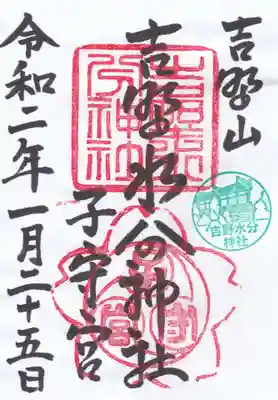 吉野山
吉野水分神社
子守宮
令和二年一月二十五日
吉野水分神社
吉野水分
神社